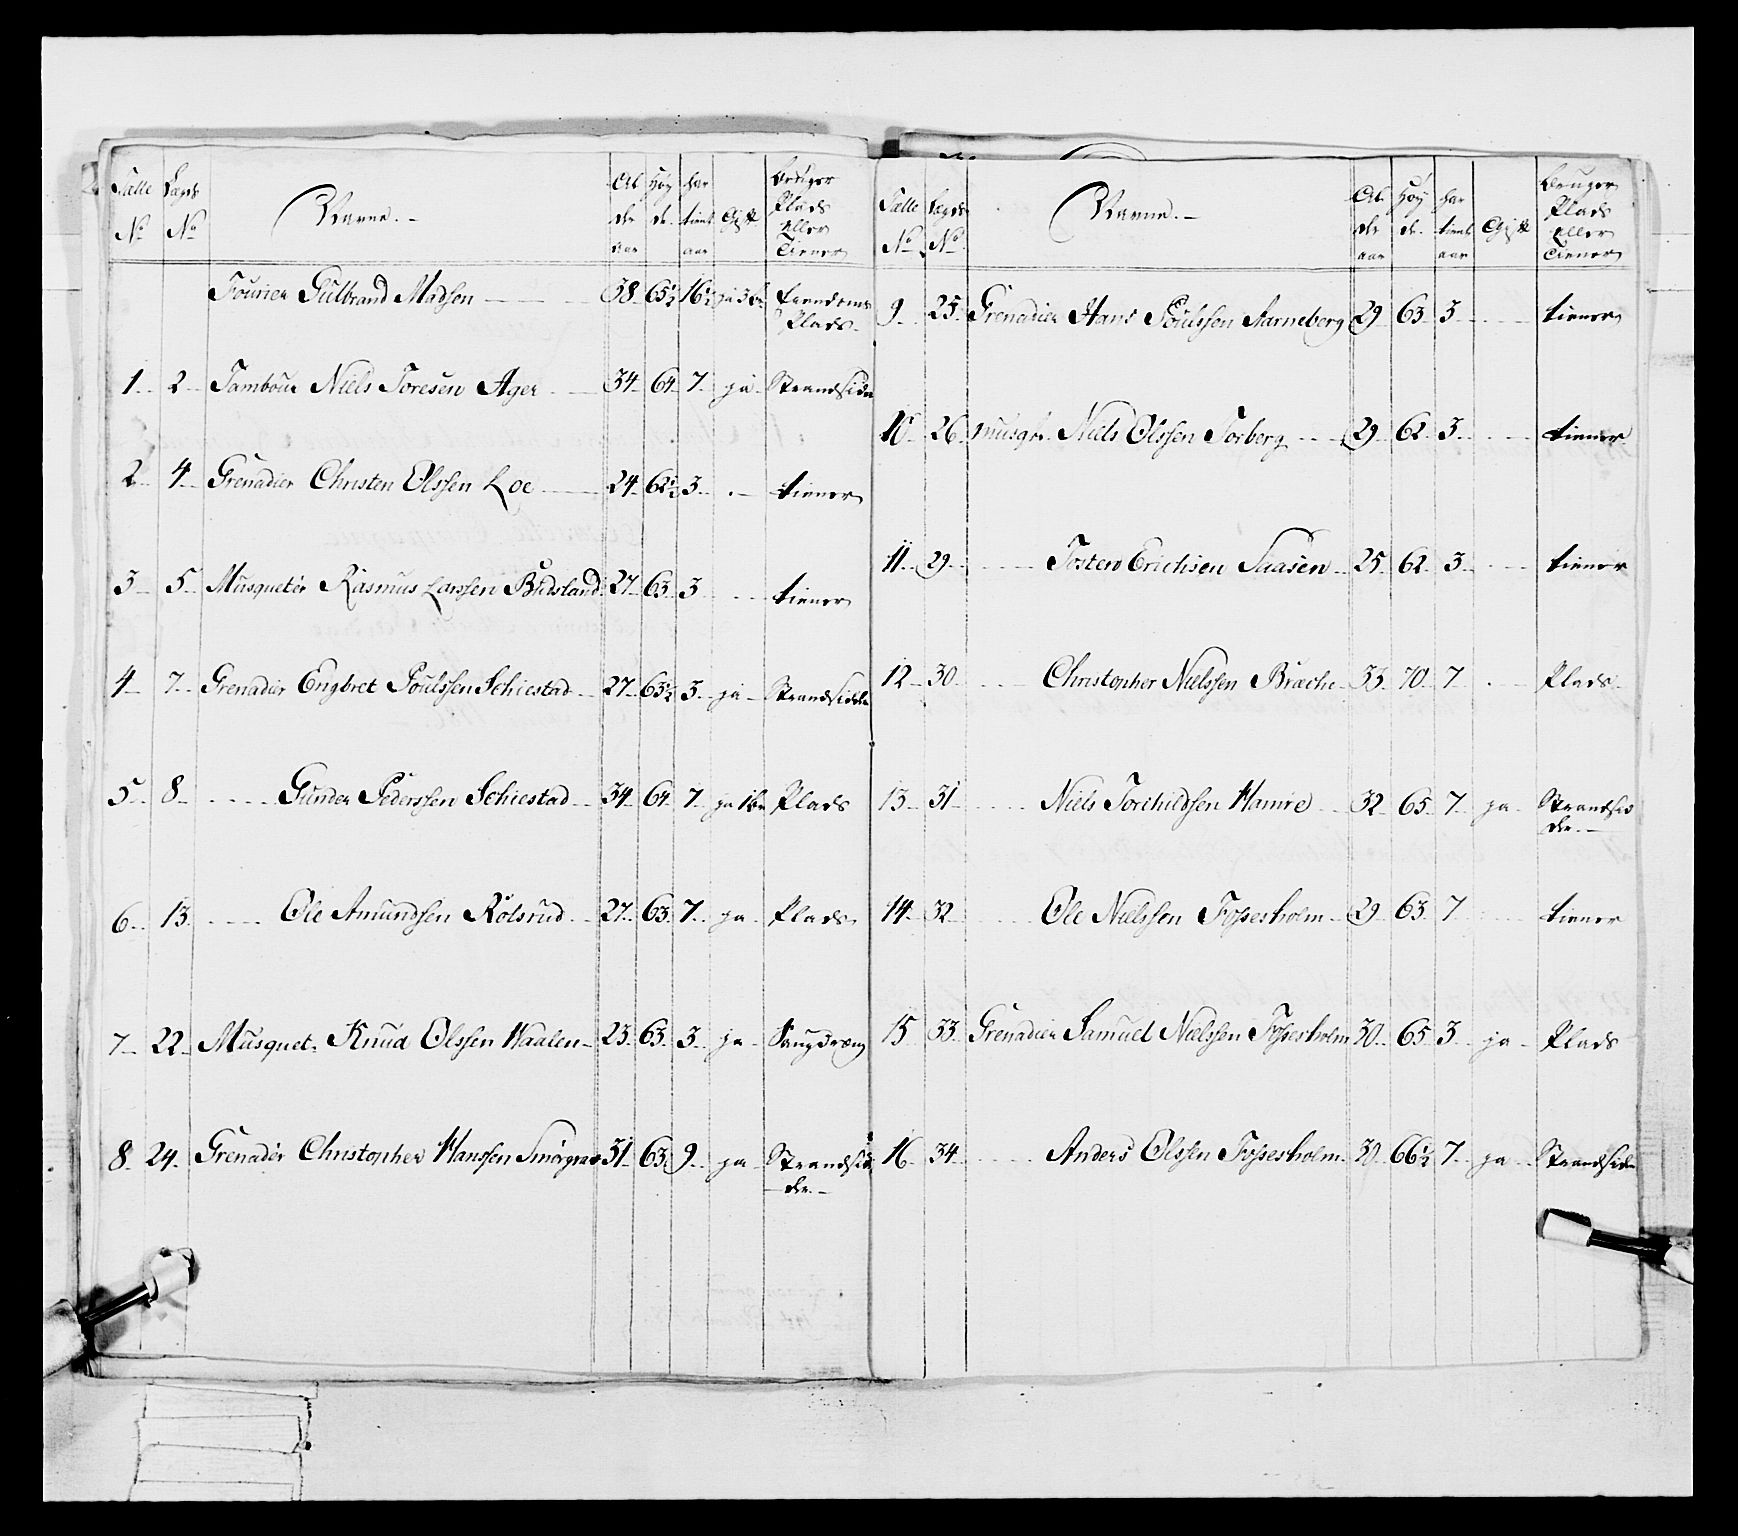 Talle No Lægds No Navne.- Alder aar Høyde har tient aar Gift Bruger Plads eller Tiener
Fourier Gulbrand Madsen 38 65½ 16½ ja 3 Eiendoms Plads
1 2 Tambour Niels Toresen Ager 34 64 7 ja Strandsider
2 4 Grenadier Christen Olssen Loe 24 62½ 3 . tiener
3 5 Musqueteir Rasmus Larssen Budsland 27 63 3 tiener
4 7 Grenadeir Engbret Poulssen Schiestad 27 63½ 3 ja Strandsider
5 8 Gunder Pederssen Schiestad 34 64 7 ja Plads
6 13 Ole Amundsen Rolsrud 27 63 7 ja Plads
7 22 Musquet. Knud Olssen Haalen 23 63 3 ja
8 24 Grenadeir Christopher Hanssen Smørgrav 31 63 9 ja Strandsider
Talle No Lægds No Navne.- Alder aar Høyde har tient aar Gift Bruger Plads eller Tiener
9 25 Grenadier Hans Poulssen Aarneberg 29 63 3 tiener
10 26 Musqt. Niels Olssen Torberg 29 62 3 tiener
11 29 Tosten Erichsen Saasen 25 62 3 tiener
12 30 Christopher Nielssen Bræche 33 70 7 Plads
13 31 Niels Torchildsen Hamre 32 65 7 ja Strandsider
14 32 Ole Nielssen Fossesholm 29 63 7 tiener
15 33 Grenadier Samuel Nielssen Fossesholm 30 65 3 ja Plads
16 34 Anders Olssen Fossesholm 30 66½ 7 ja Strandsider